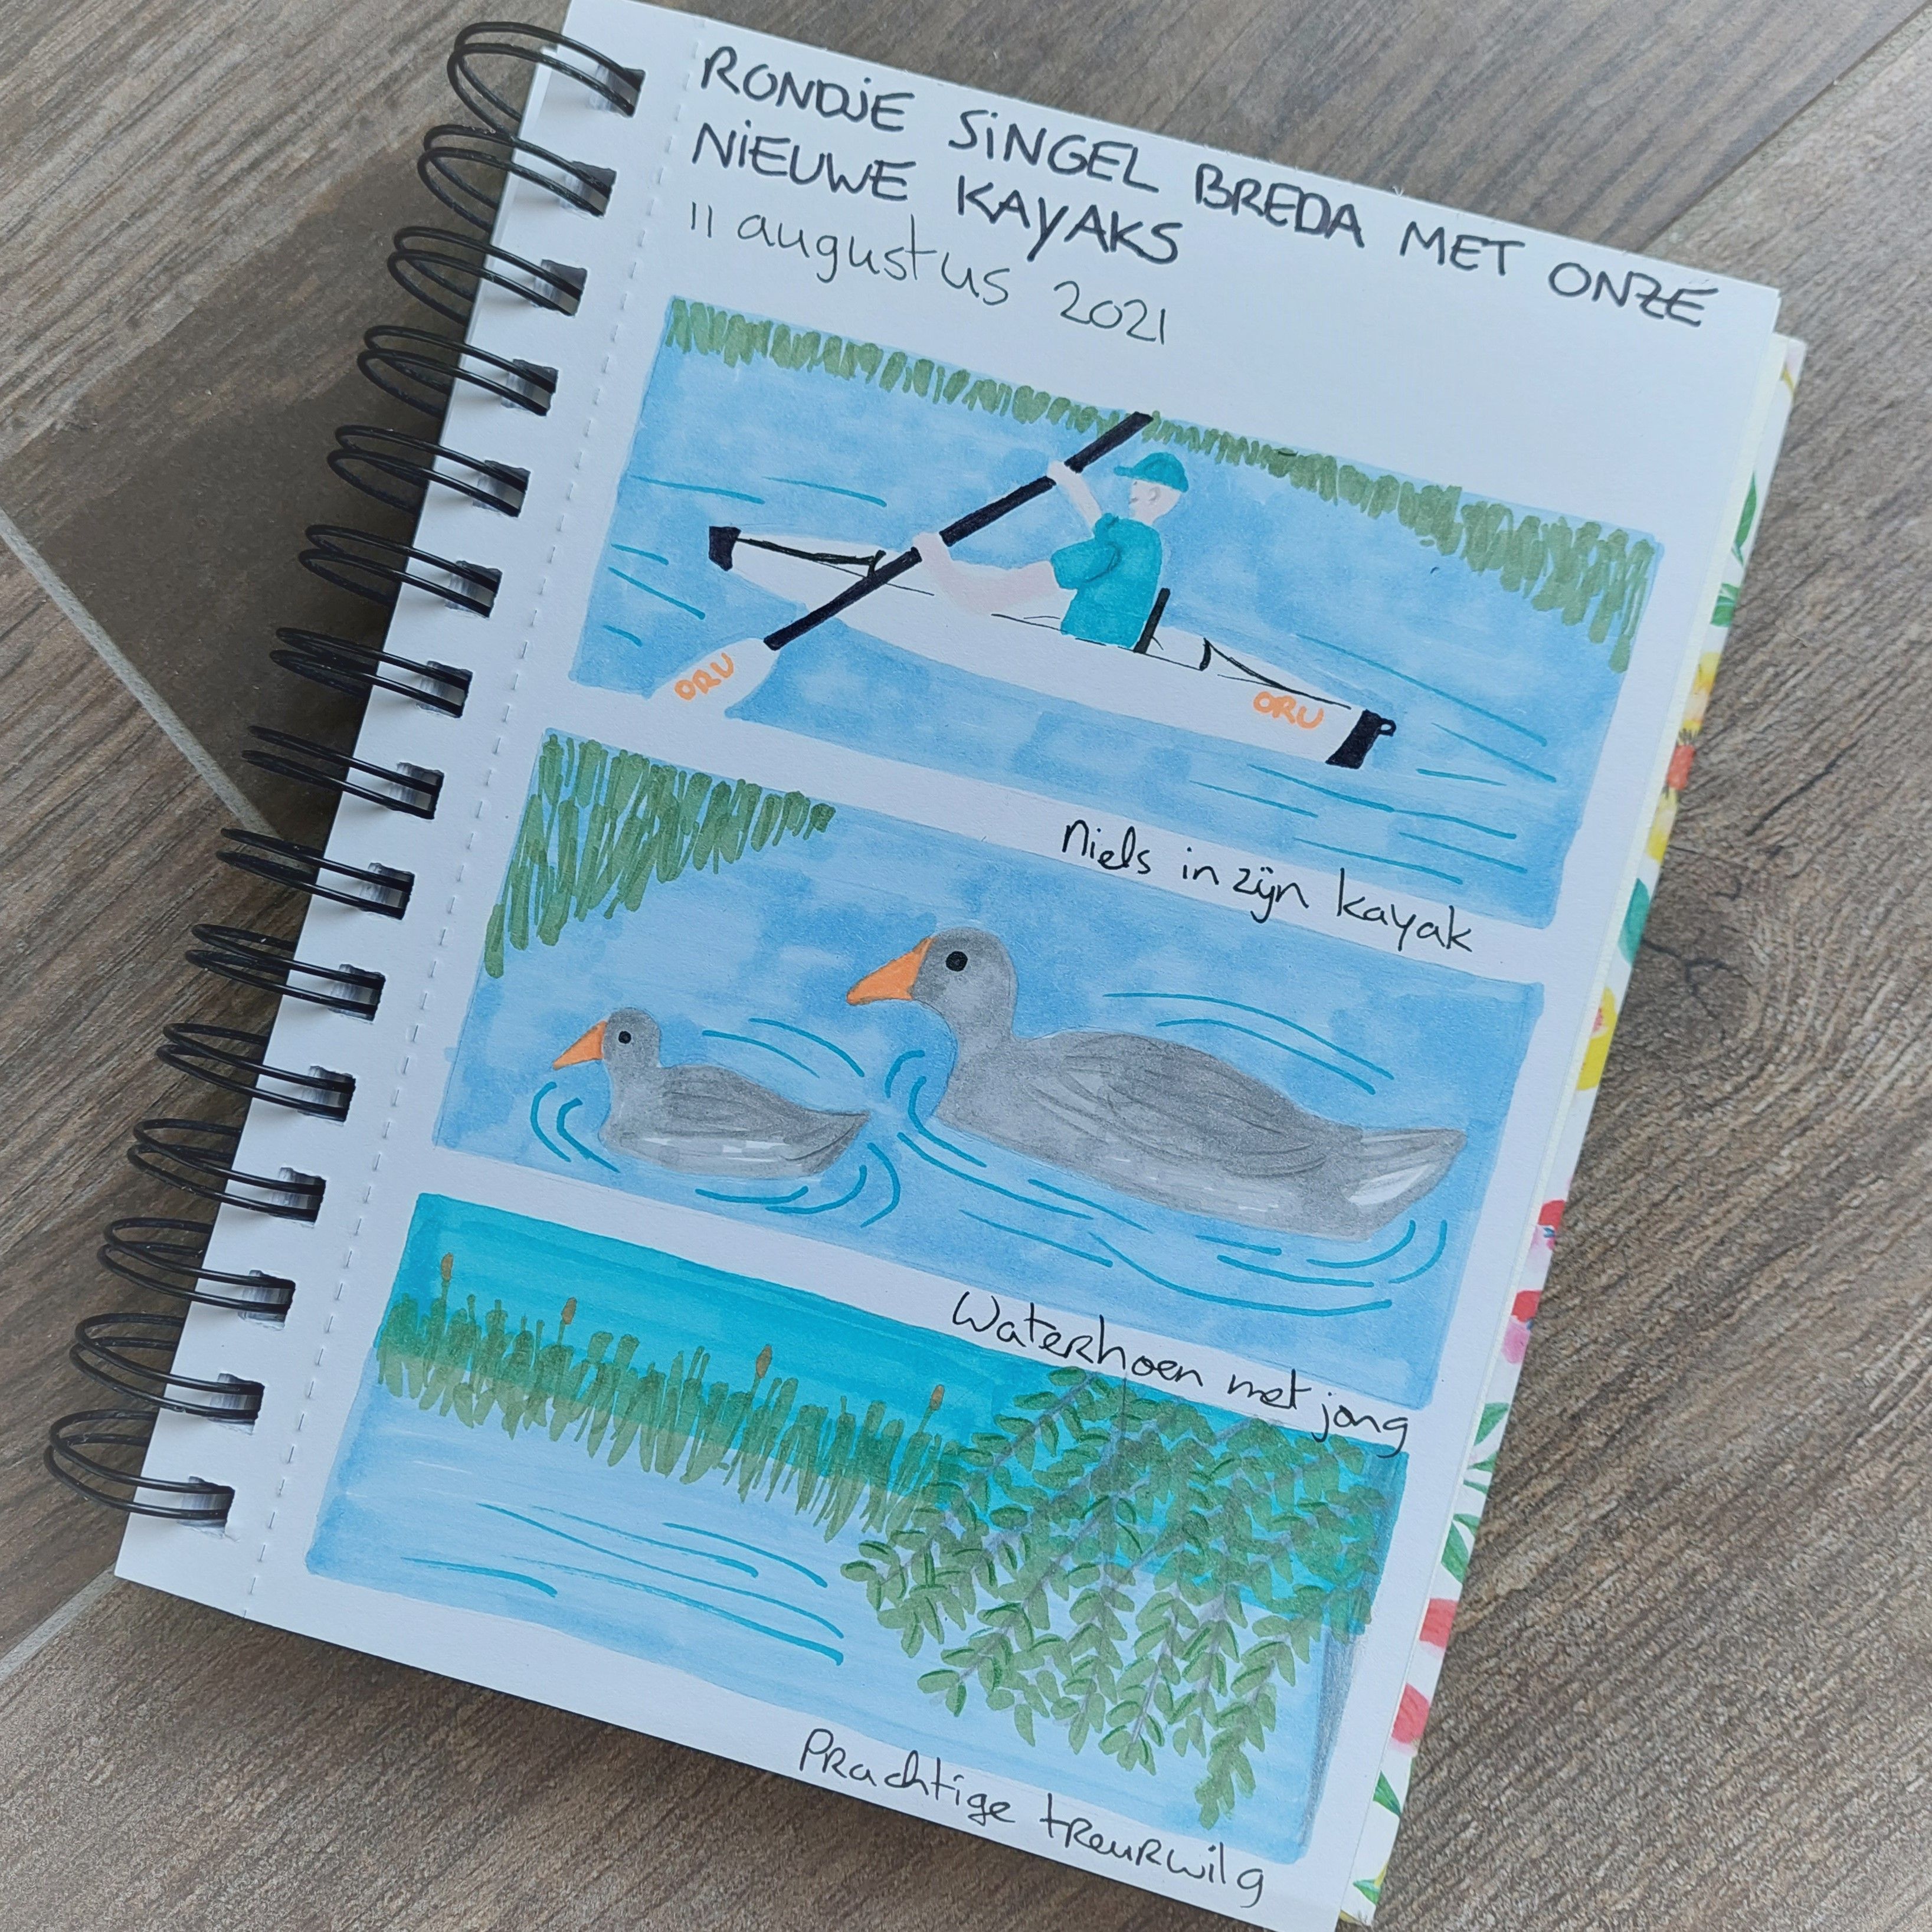 RONDJE SINGEL BREDA MET ONZE
NIEUWE KAYAKS
11 augustus 2021
ORU
ORU
Niels in zijn kayak
Waterhoen met jong
Prachtige treurwilg